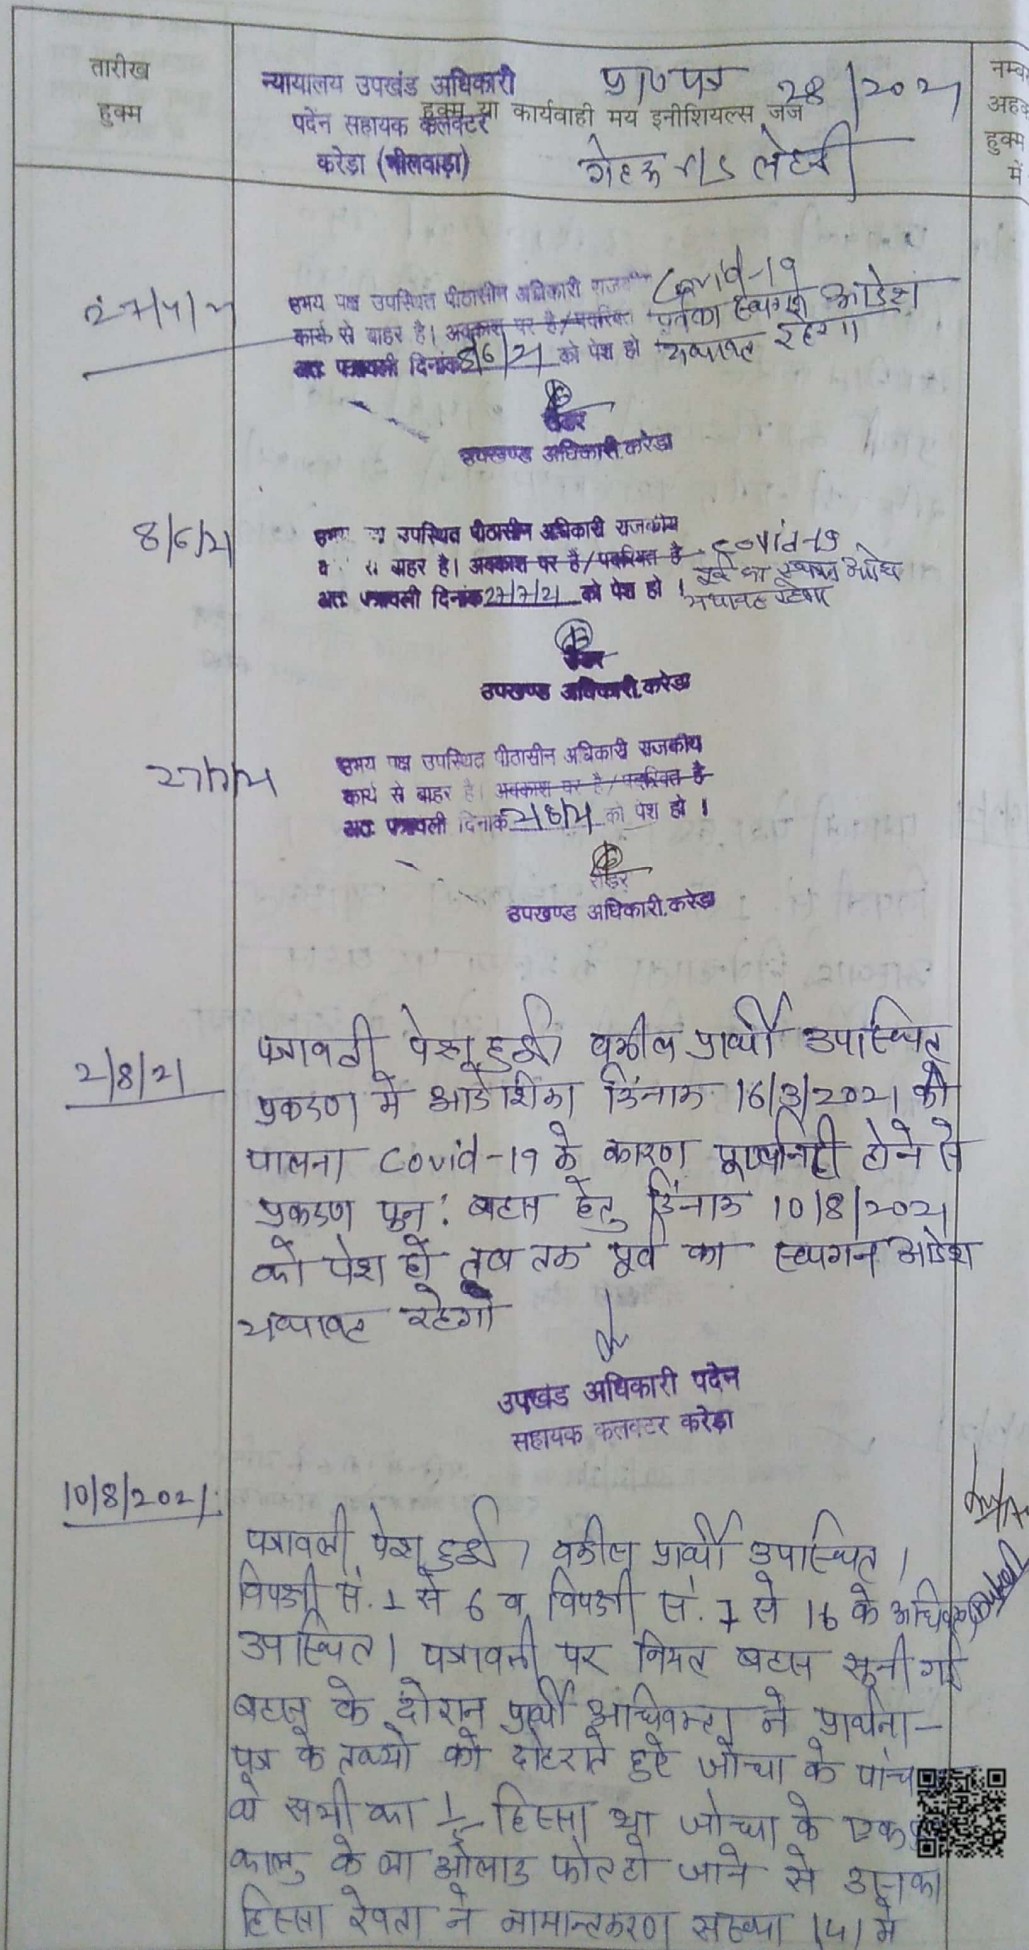 तारीख
हुक्म
न्यायालय उपखंड अधिकारी
पदेन सहायक कलक्टर
करेडा (भीलवाड़ा)
हुक्म या कार्यवाही मय इनीशियल्स जज
28/2021
नम्ब
अहक
हुक्म
में
27/4/21
उभय पक्ष उपस्थित पीठासीन अधिकारी राज
कार्य से बाहर है। अवकाश पर है/पदरिक्त
अतः पत्रावली दिनांक 8/6/21 को पेश हो
Covid-19
पूर्व का स्थगन आदेश
यथावत रहेगा
रीडर
उपखण्ड अधिकारी, करेडा
8/6/21
उपस्थित पीठासीन अधिकारी राजकीय
बाहर है। अवकाश पर है/पदरिक्त है
अतः पत्रावली दिनांक 27/7/21 को पेश हो।
Covid-19
पूर्व का स्थगन आदेश
यथावत रहेगा
रीडर
उपखण्ड अधिकारी, करेडा
27/7/21
उभय पक्ष उपस्थित पीठासीन अधिकारी राजकीय
कार्य से बाहर है। अवकाश पर है/पदरिक्त है
अतः पत्रावली दिनांक 2/8/21 को पेश हो।
रीडर
उपखण्ड अधिकारी, करेडा
2/8/21
पत्रावली पेश हुई। वकील प्रार्थी उपस्थित
प्रकरण में आदेशिका दिनांक 16/3/2021 की
पालना Covid-19 के कारण होने से
प्रकरण पुन: बहस हेतु दिनांक 10/8/2021
को पेश हो तब तक पूर्व का स्थगन आदेश
यथावत रहेगा
उपखंड अधिकारी पदेन
सहायक कलक्टर करेड़ा
10/8/2021
पत्रावली पेश हुई। वकील प्रार्थी उपस्थित।
विपक्षी सं. 1 से 6 व विपक्षी सं. 7 से 16 के
उपस्थित। पत्रावली पर नियत बहस सूनी गई
बहस के दौरान प्रार्थी अधिवक्ता ने प्रार्थना-
पत्र के तथ्यों को दोहराते हुए जोधा के पांच
थे सभी का 1/5 हिस्सा था जोधा के एक
कालु के ला औलाद फोत हो जाने से उसका
हिस्सा रेवता ने नामान्तकरण संख्या 141 में